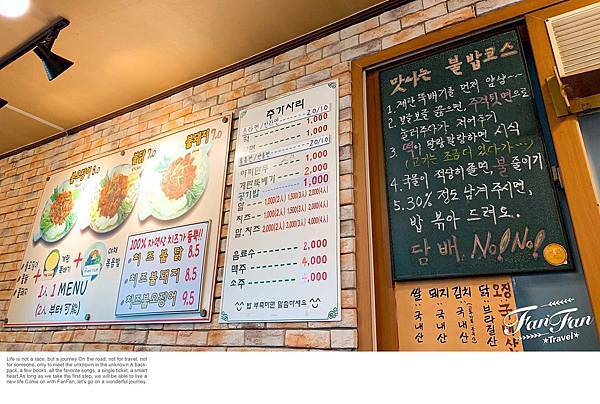 불닭 7.0
불돼지 7.0
100% 자연산 치즈가 듬뿍!!
치즈불닭 8.5
치즈불돼지 8.5
치즈불오징어 9.5
계란
뚝배기
야채
볶음밥
1人 1 MENU
(2人 부터 可能)
추가사리
20/10
1,000
떡 1,000
20/10
1,000
계란뚝배기 1,000
공기밥 1,000
알 1,000(2人) 1,500(3人) 2,000(4人)
치즈 1,000(2人) 1,500(3人) 2,000(4人)
알,치즈 2,000(2人) 3,000(3人) 4,000(4人)
음료수 2,000
맥주 4,000
소주 4,000
밥 부족하면 말씀하세요
맛나는 불밥코스
1. 계란뚝배기를 먼저 얌냠~~
2. 보글보글 끓으면, 주걱뒷면으로
눌러주다가 저어주기
3. 떡이 말랑말랑하면 시식
(고기는 조금더 있다가~~)
4. 국물이 적당히 졸면, 불 줄이기
5. 30% 정도 남겨주시면,
밥 볶아 드려요.
담배, No! No!
쌀 국내산
돼지 국내산
김치
닭
오징어
FanFan
★Travel★
FanFan
★Travel★
Life is not a race, but a journey.On the road, not for travel, not
for someone, only to meet the unknown in the unknown.A back-
pack, a few books, all the favorite songs, a single ticket, a smart
heart.As long as we take the first step, we will be able to live a
new life.Come on with FanFan, let's go on a wonderful journey.